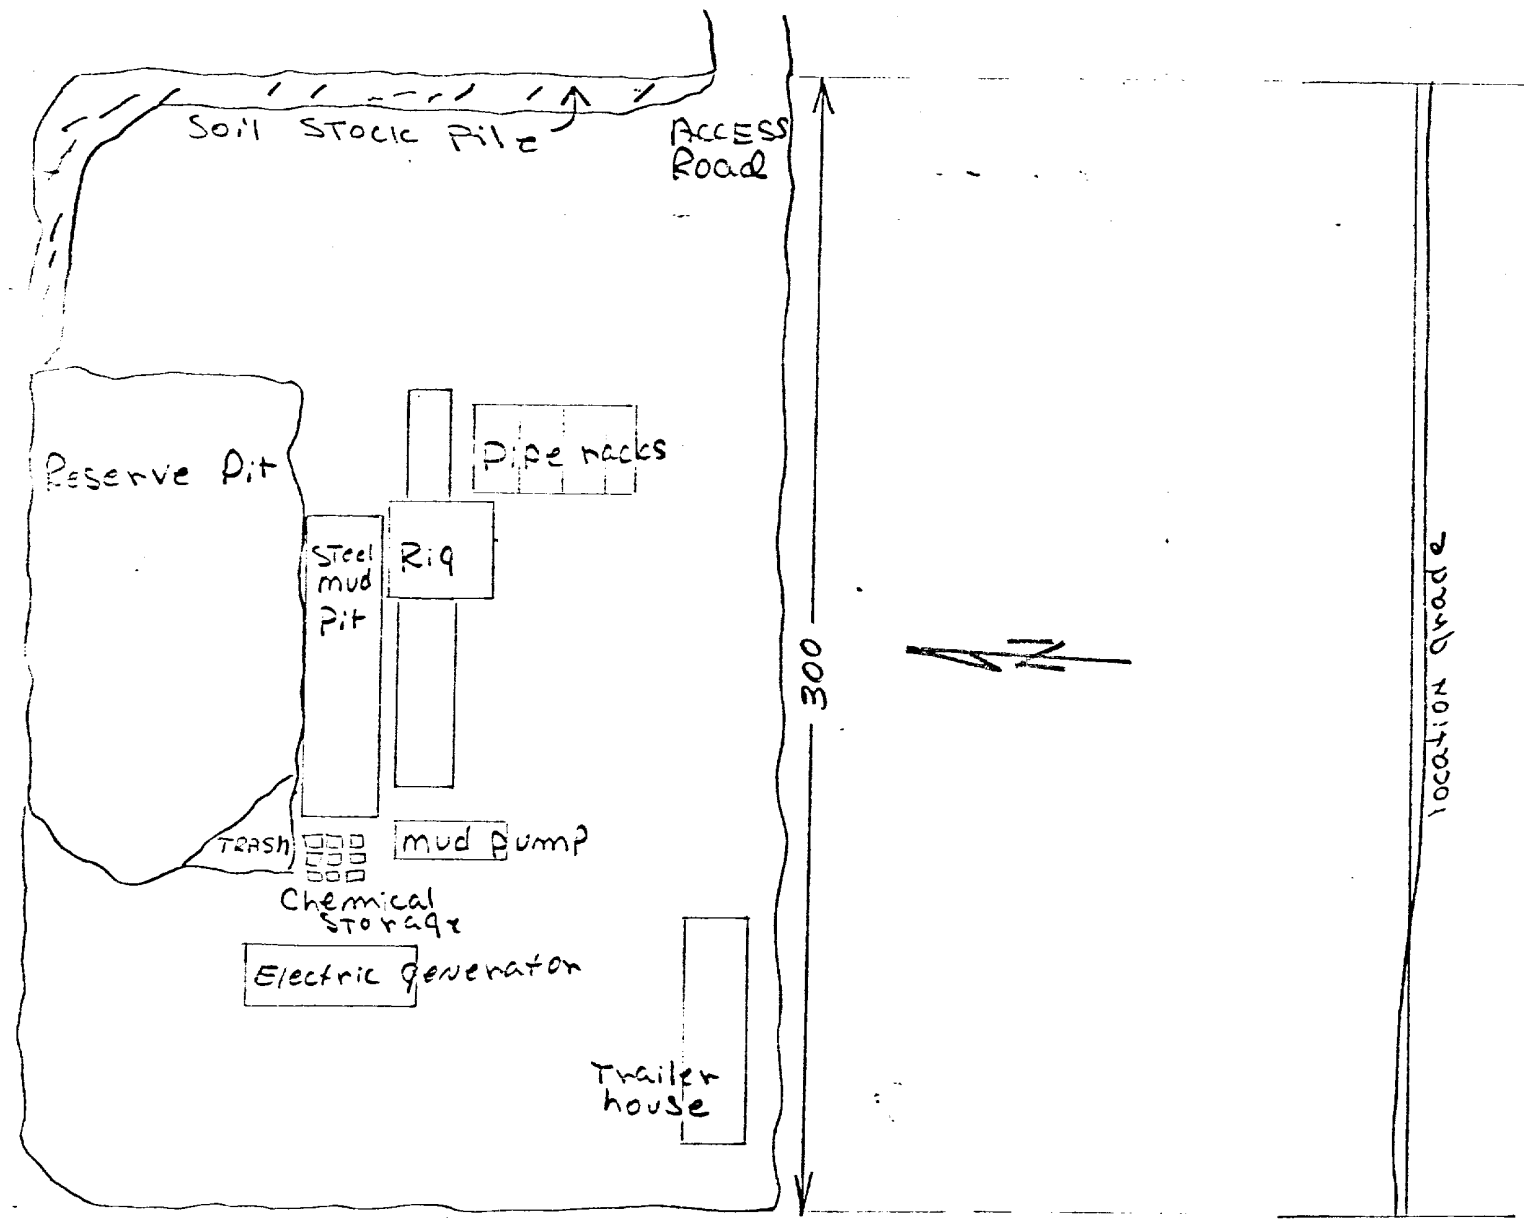 Soil Stock Pile
ACCESS
Road
Reserve Pit
Pipe racks
Steel
mud
Pit
Rig
300
N
location grade
TRASH
mud pump
Chemical
Storage
Electric generator
Trailer
house